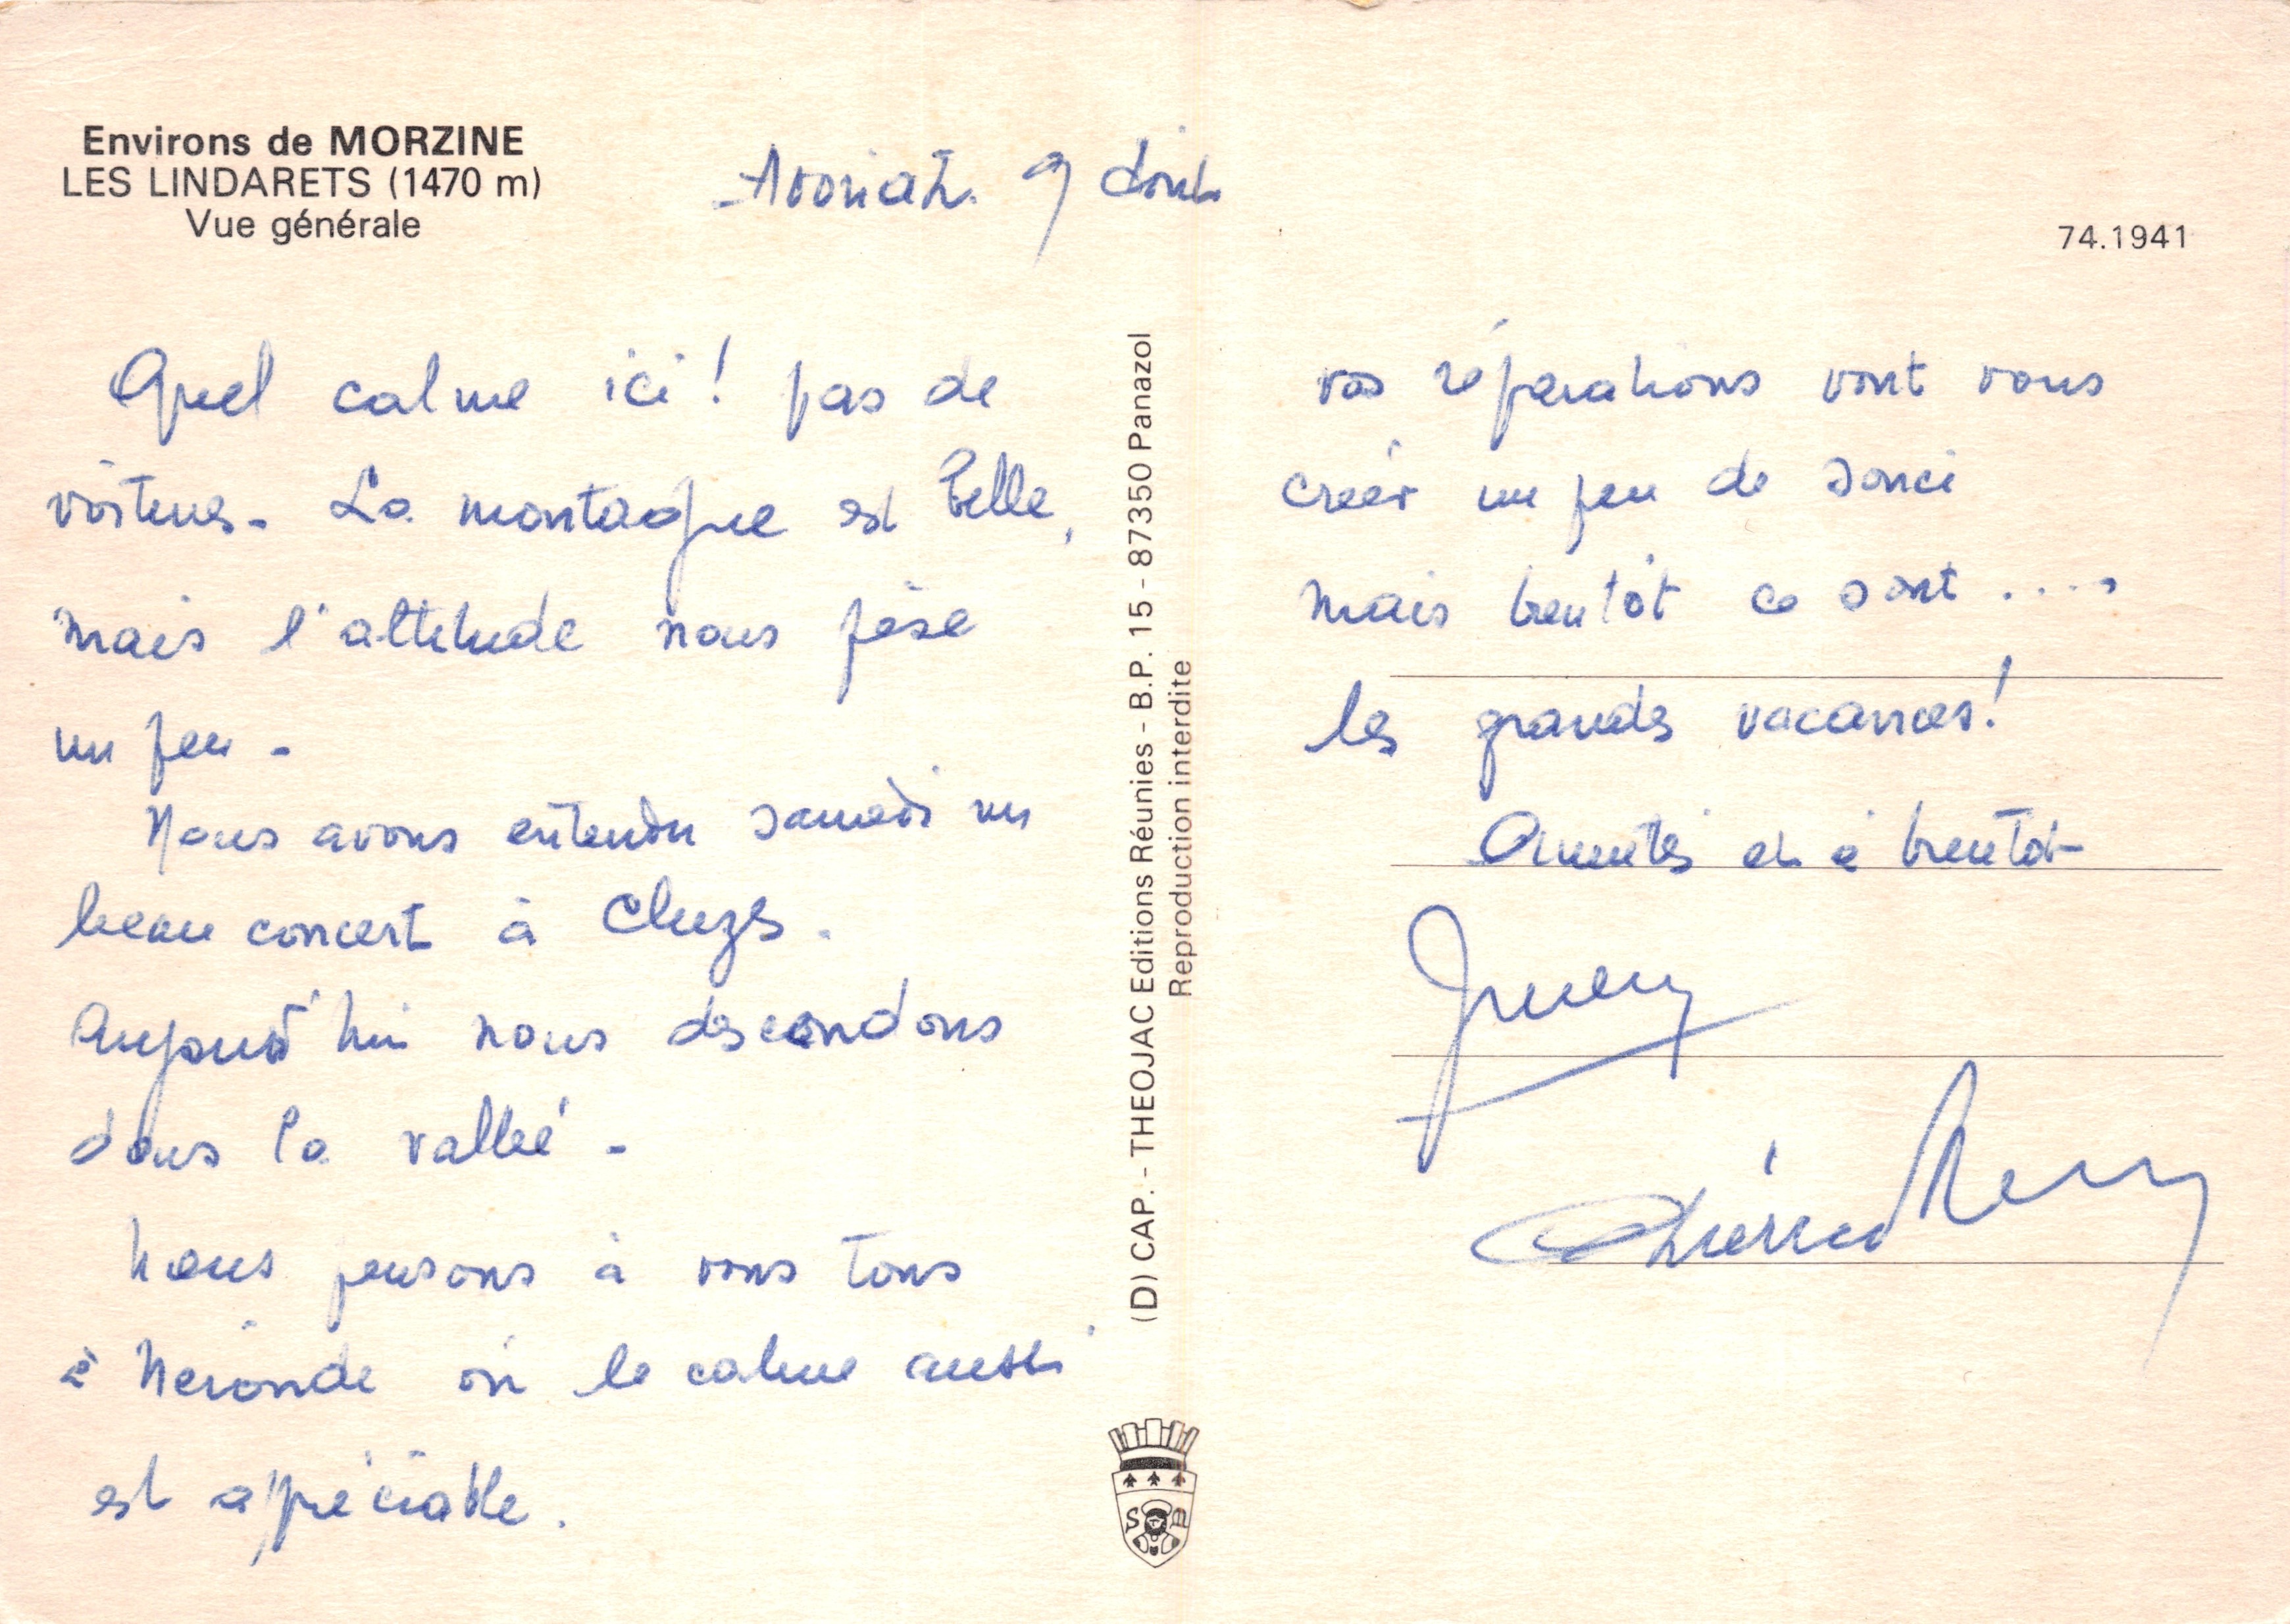 Environs de MORZINE
LES LINDARETS (1470 m)
Vue générale
Avoriaz. 9 Août
74.1941
Quel calme ici! pas de
voitures. La montagne est belle,
mais l'altitude nous pèse
un peu -
Nous avons entendu samedi un
beau concert à Cluzs.
Aujourd'hui nous descendons
dans la vallée -
Nous pensons à vous tous
à Neronde où le calme aussi
est appréciable.
(D) CAP. - THEOJAC Editions Réunies - B.P. 15 - 87350 Panazol
Reproduction interdite
vos réparations vont vous
créer un peu de souci
mais bientôt ce sont ....
les grands vacances!
Amitiés et à bientôt